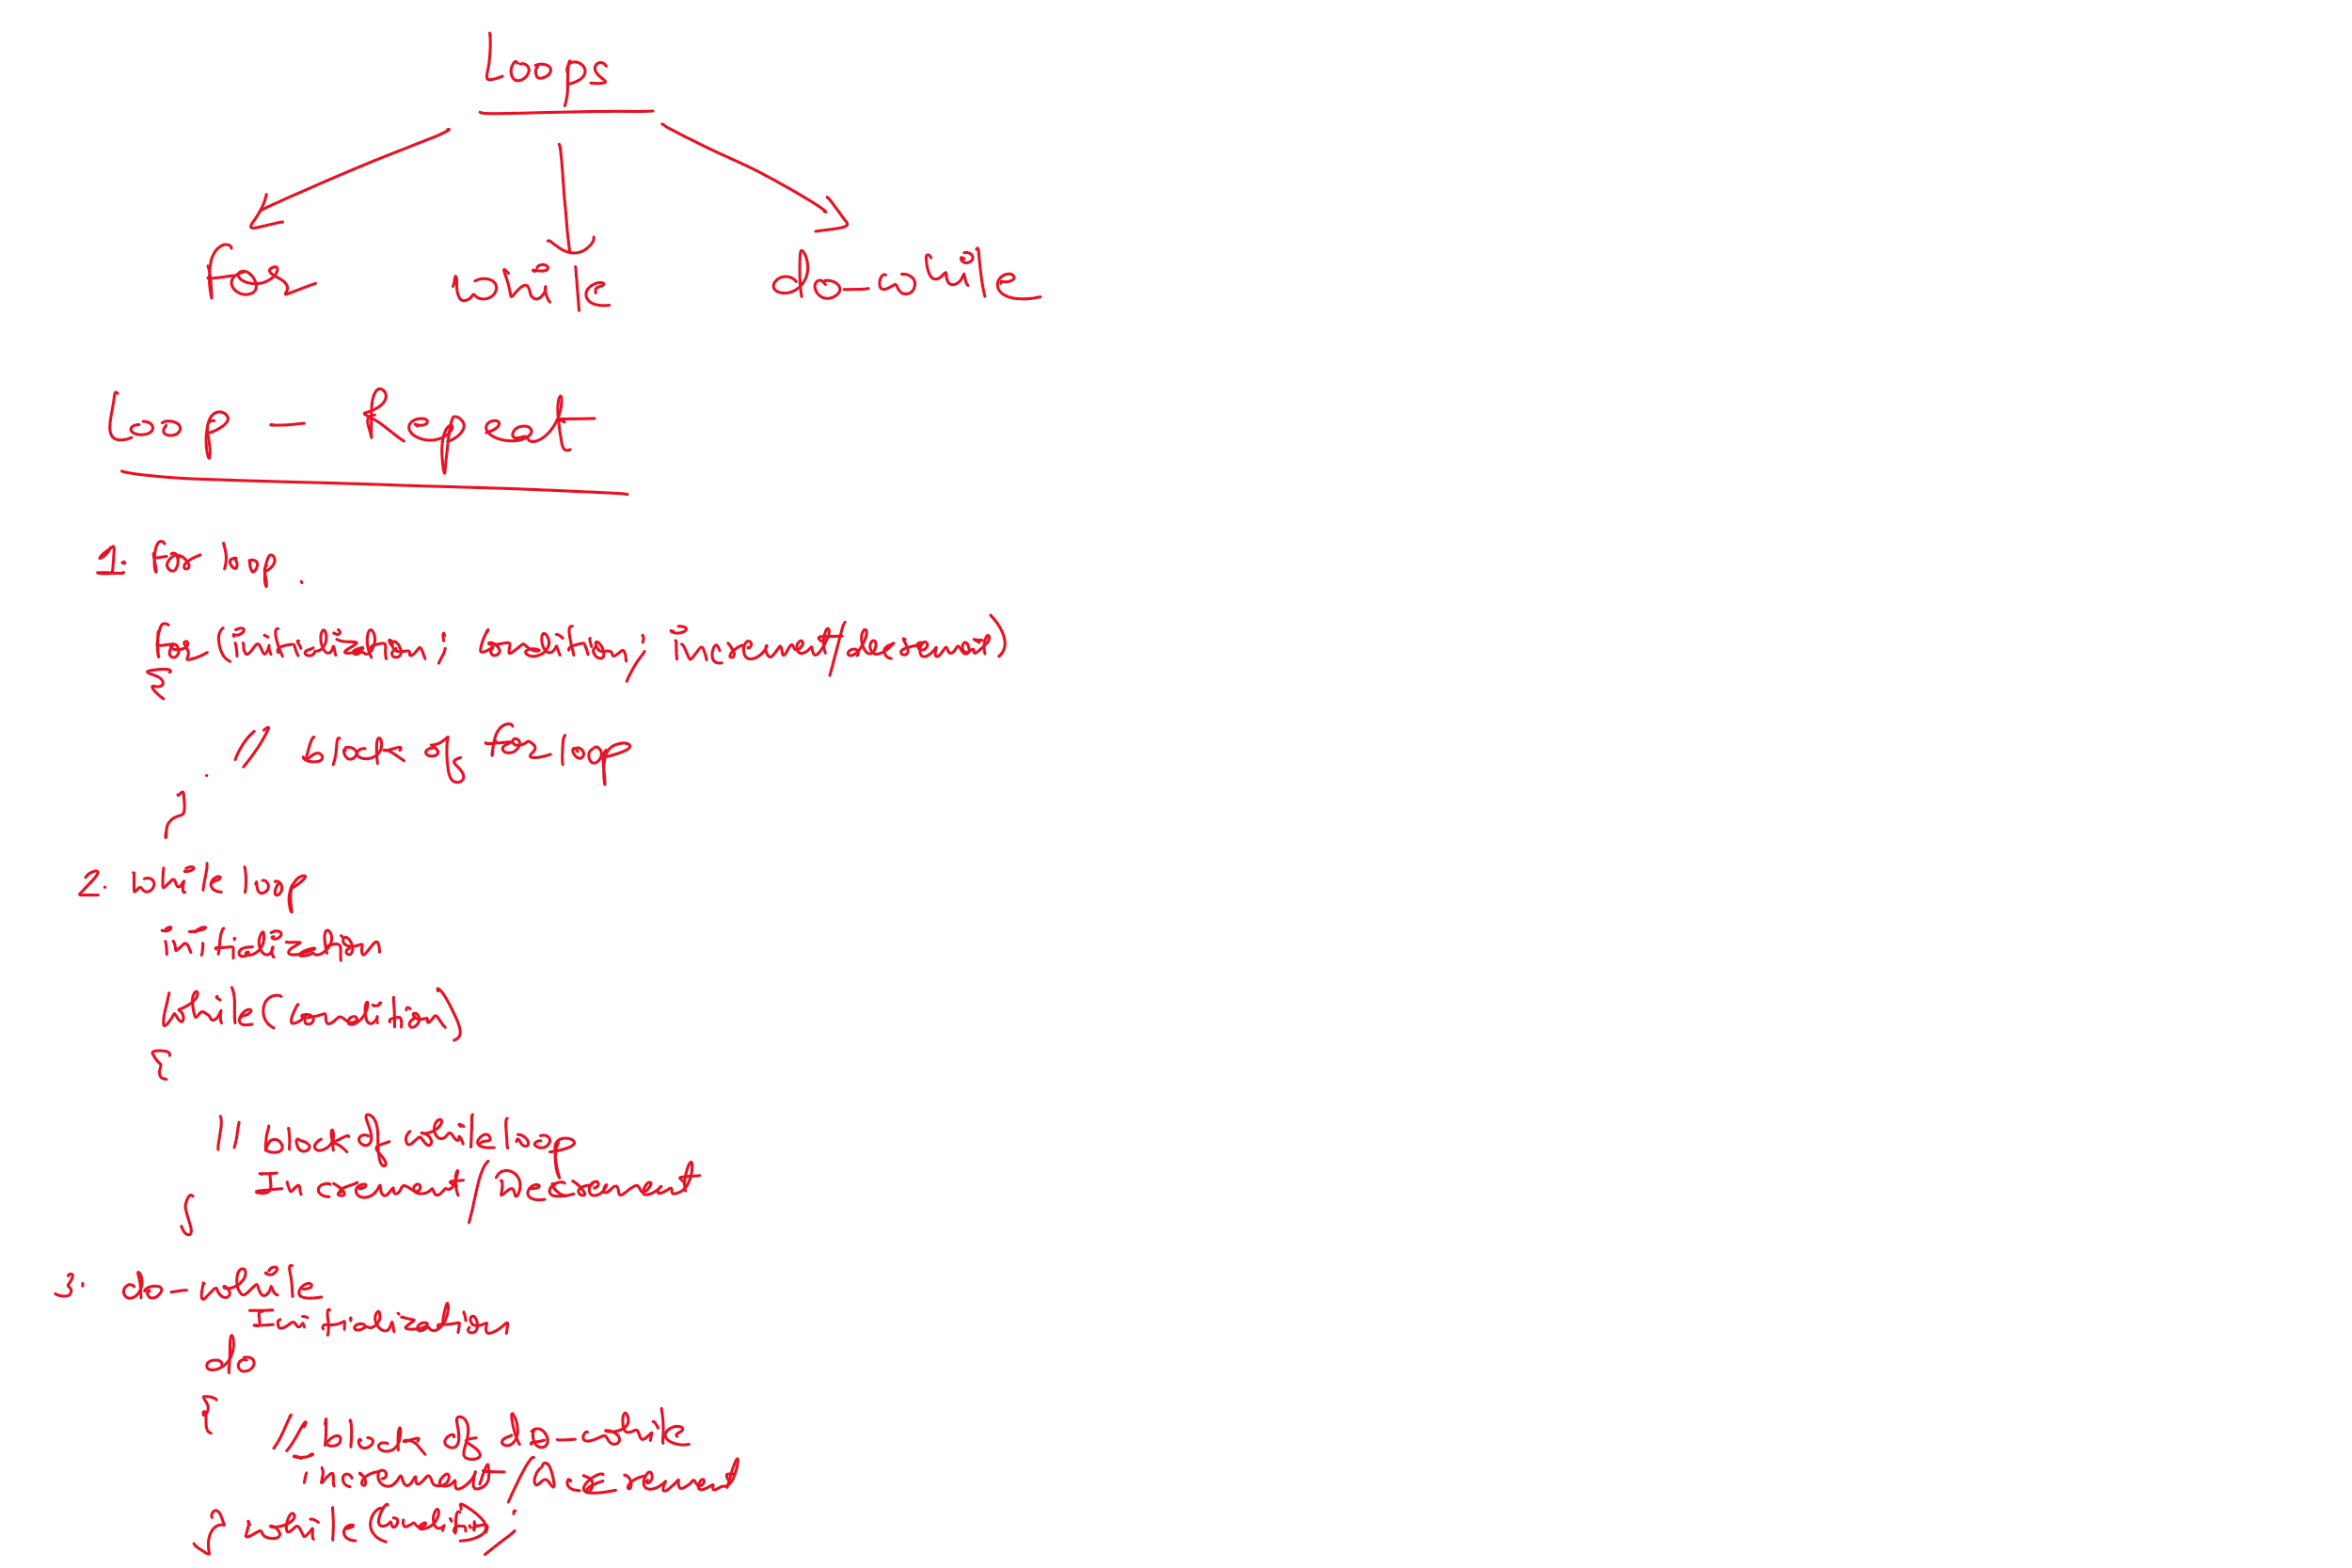 Loops
for while do-while
Loop - Repeat
1. for loop.
for (initialization; condition; increment/decrement)
{
// block of for loop
}
2. while loop
initialization
while (condition)
{
// block of while loop
Increment/Decrement
}
3. do-while
Initialization
do
{
// block of do-while
increment/Decrement
} while (condition);